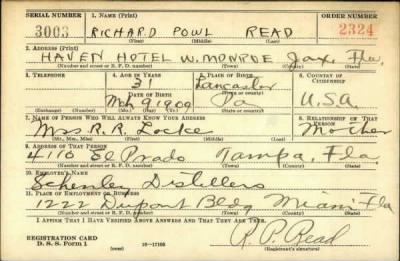 SERIAL NUMBER 1. NAME (Print) ORDER NUMBER
3003 RICHARD POWL READ 2324
(First) (Middle) (Last)
2. ADDRESS (Print)
HAVEN HOTEL W. MONROE Jax, Fla.
(Number and street or R. F. D. number) (Town) (County) (State)
3. TELEPHONE 4. AGE IN YEARS 5. PLACE OF BIRTH 6. COUNTRY OF CITIZENSHIP
31 Lancaster
DATE OF BIRTH (Town or county)
Mch 9 1909 Pa U.S.A.
(Exchange) (Number) (Mo.) (Day) (Yr.) (State or country)
7. NAME OF PERSON WHO WILL ALWAYS KNOW YOUR ADDRESS 8. RELATIONSHIP OF THAT PERSON
Mrs R. R. Locke Mother
(Mr., Mrs., Miss) (First) (Middle) (Last)
9. ADDRESS OF THAT PERSON
4110 El Prado Tampa, Fla
(Number and street or R. F. D. number) (Town) (County) (State)
10. EMPLOYER'S NAME
Schenley Distillers
11. PLACE OF EMPLOYMENT OR BUSINESS
1222 Dupont Bldg Miami Fla
(Number and street or R. F. D. number) (Town) (County) (State)
I AFFIRM THAT I HAVE VERIFIED ABOVE ANSWERS AND THAT THEY ARE TRUE.
REGISTRATION CARD
D. S. S. Form 1 (over) 16—17105 R. P. Read
(Registrant's signature)